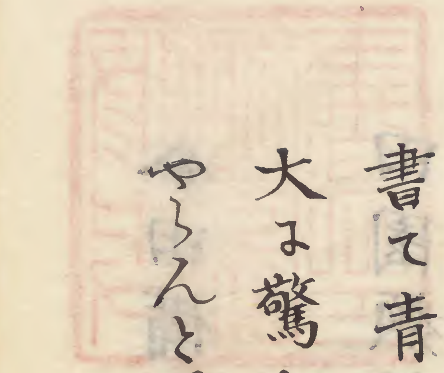 書て青
大に驚
やらんと